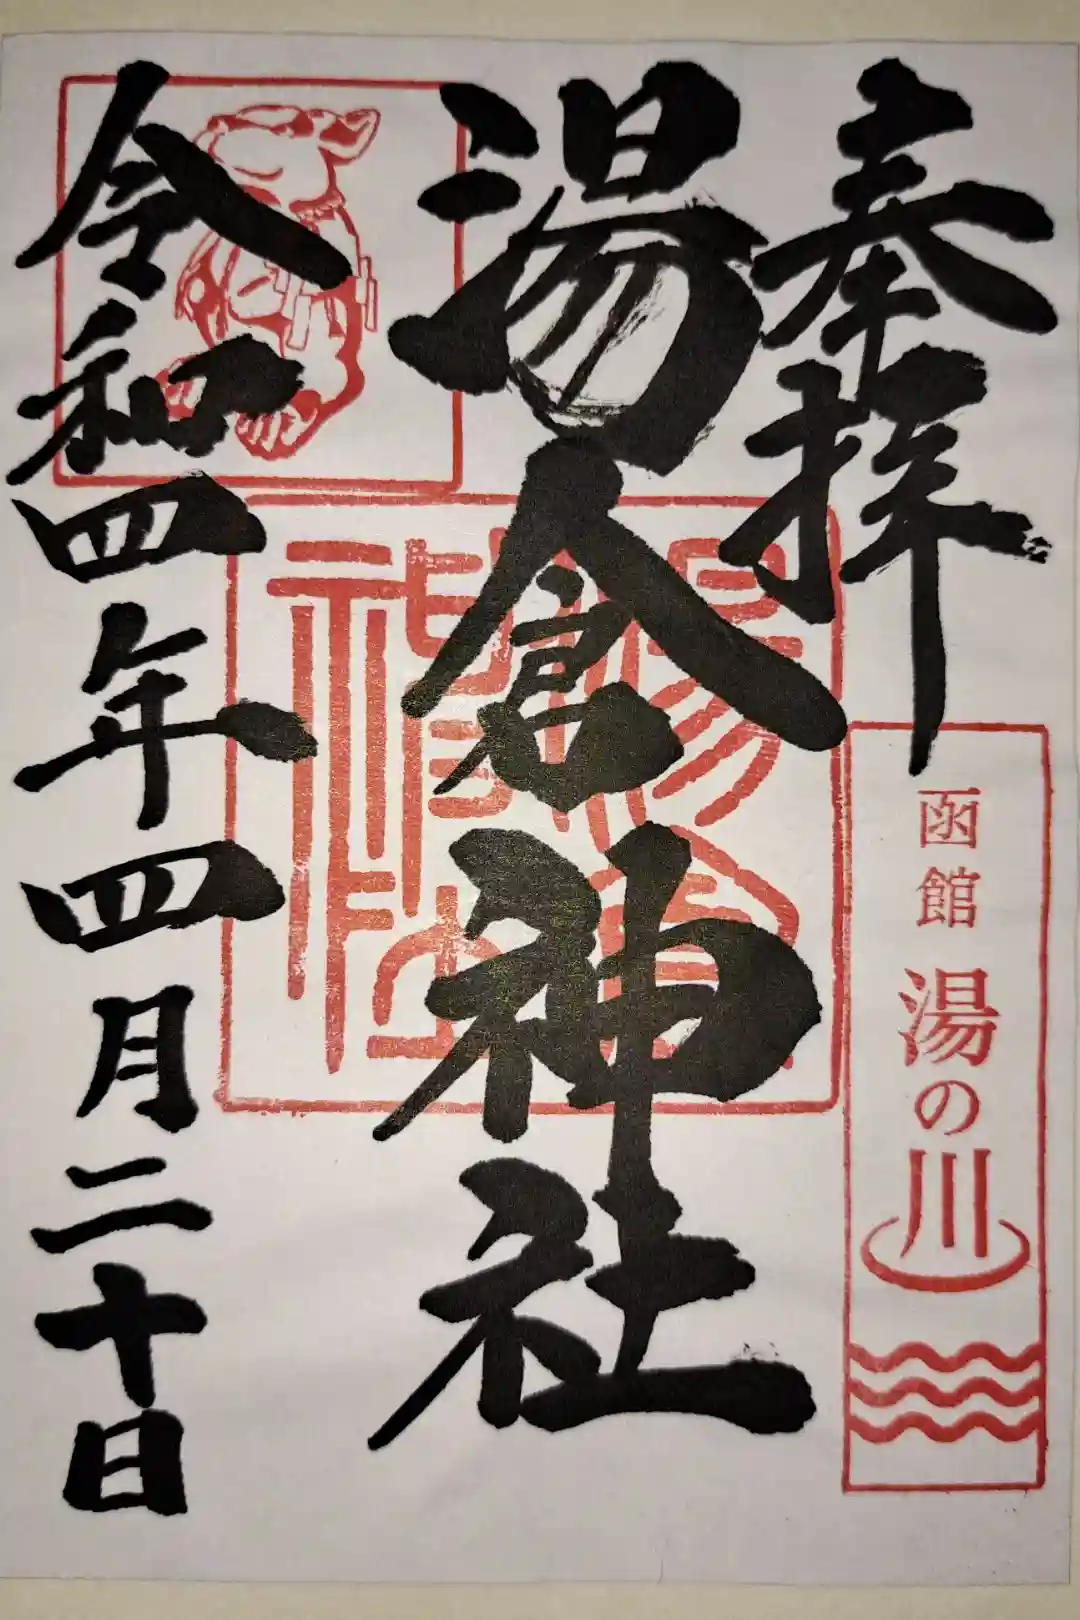 奉拝
函館 湯の川
湯倉神社
湯倉神社
令和四年四月二十日